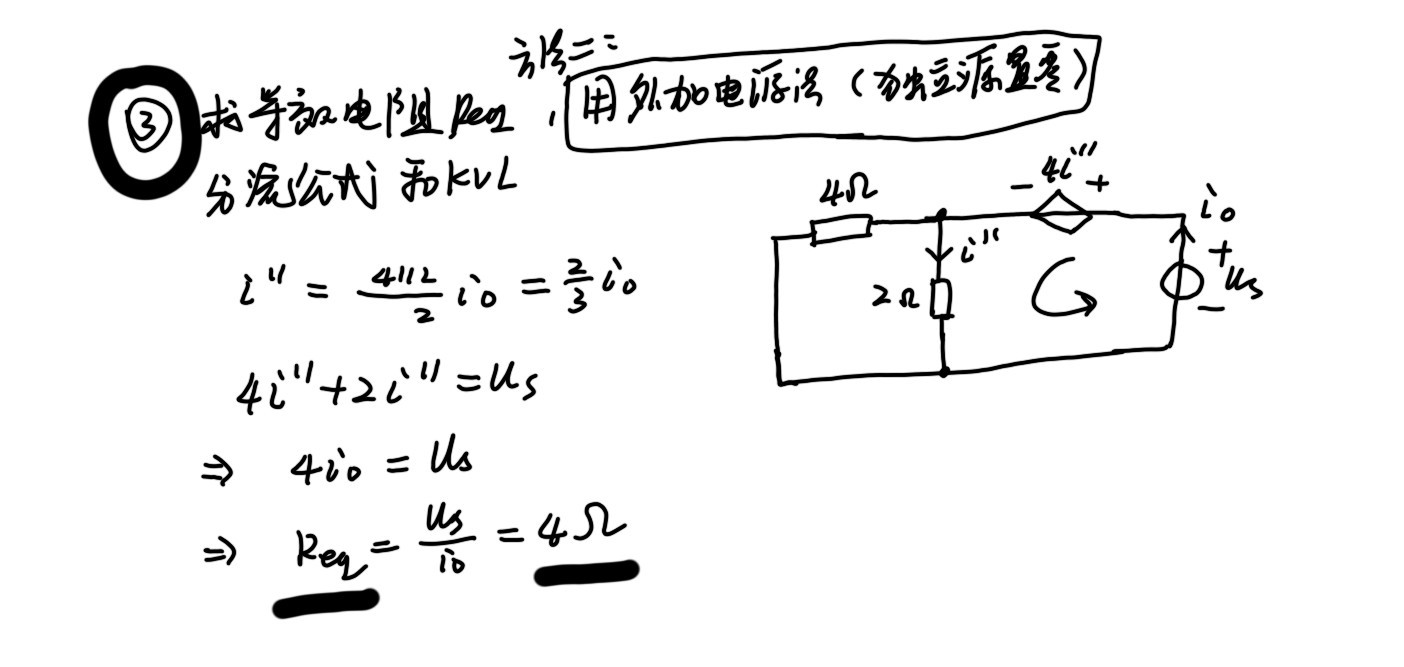 方法二:
③ 求等效电阻Req,用外加电源法(为独立源置零)
分流公式和KVL
i'' = 4//2/2 i₀ = 2/3 i₀
4i''+2i''=us
⇒ 4i₀ = us
⇒ Req = us/i₀ = 4Ω
- 4i'' +
4Ω
i₀
i''
+
2Ω
us
-